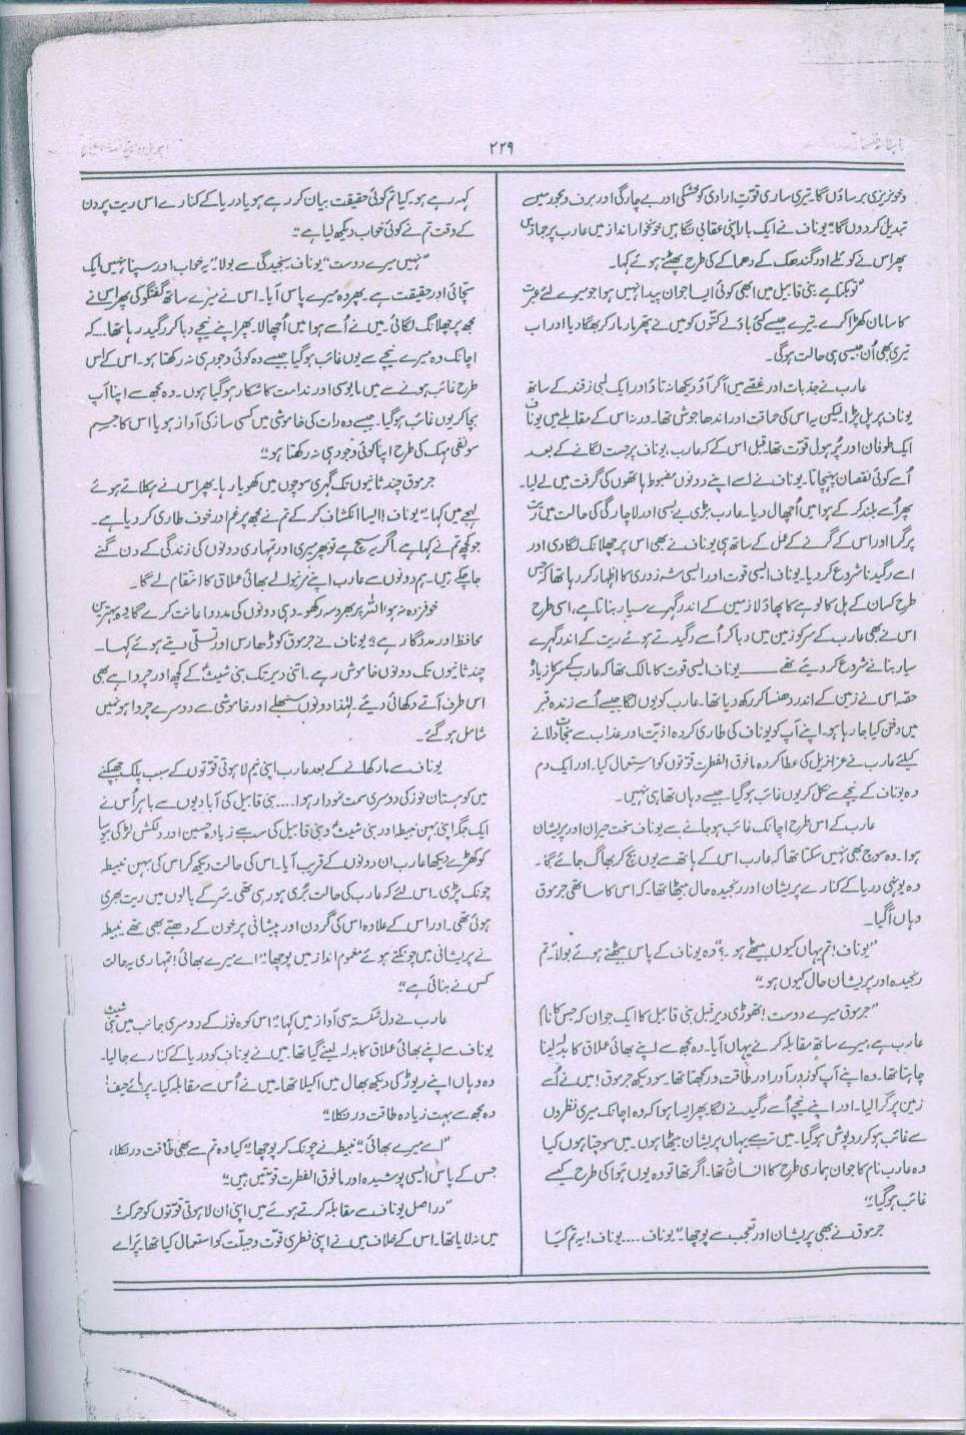 ۲۲۹
و خونریزی برساؤں گا۔ تیری ساری قوتِ ارادی کو خشکی اور بے چارگی اور برف و نجور میں
تبدیل کر دوں گا۔" یوناف نے ایک بار اپنی عقابی نگاہیں خونخوار انداز میں عارب پر جمادیں
پھر اس نے کوئلے اور گندھک کے دھماکے کی طرح پھٹتے ہوئے کہا۔
"تو بکتا ہے بنی قابیل میں ابھی کوئی ایسا جوان پیدا نہیں ہوا جو میرے لئے عبرت
کا سامان کھڑا کرے۔ تیرے جیسے کئی باؤلے کتوں کو میں نے پتھر مار مار کر بھگا دیا اور اب
تیری بھی اُن جیسی ہی حالت ہوگی۔
عارب نے جذبات اور غصے میں آکر آؤ دیکھا نہ تاؤ اور ایک لمبی زقند کے ساتھ
یوناف پر پل پڑا لیکن یہ اس کی حماقت اور اندھا جوش تھا۔ ورنہ اس کے مقابلے میں یوناف
ایک طوفان اور پُر ہول قوت تھا۔ قبل اس کے کہ عارب، یوناف پر جست لگانے کے بعد
اُسے کوئی نقصان پہنچاتا۔ یوناف نے اسے اپنے دونوں مضبوط ہاتھوں کی گرفت میں لے لیا۔
پھر اُسے بلند کر کے ہوا میں اُچھال دیا۔ عارب بڑی بے بسی اور لاچارگی کی حالت میں ریت
پر گرا اور اس کے گرنے کے عمل کے ساتھ ہی یوناف نے بھی اس پر چھلانگ لگا دی اور
اسے رگیدنا شروع کر دیا۔ یوناف ایسی قوت اور ایسی شہ زوری کا اظہار کر رہا تھا کہ جس
طرح کسان کے ہل کا لوہے کا پھاؤ زمین کے اندر گہرے سیار بناتا ہے، اسی طرح
اس نے بھی عارب کے سر کو زمین میں دبا کر اُسے رگیدتے ہوئے ریت کے اندر گہرے
سیار بنانے شروع کر دیئے تھے ــــــــ یوناف ایسی قوت کا مالک تھا کہ عارب کے سر کا زیادہ
حصہ اس نے زمین کے اندر دھنسا کر رکھ دیا تھا۔ عارب کو یوں لگا جیسے اُسے زندہ قبر
میں دفن کیا جا رہا ہو۔ اپنے آپ کو یوناف کی طاری کردہ اذیت اور عذاب سے نجات دلانے
کیلئے عارب نے عزازیل کی عطا کردہ مافوق الفطرت قوتوں کو استعمال کیا۔ اور ایک دم
وہ یوناف کے نیچے سے نکل کر یوں غائب ہو گیا۔ جیسے وہاں تھا ہی نہیں۔
عارب کے اس طرح اچانک غائب ہو جانے سے یوناف سخت حیران اور پریشان
ہوا۔ وہ سوچ بھی نہیں سکتا تھا کہ عارب اس کے ہاتھ سے یوں بچ کر بھاگ جائے گا۔
وہ یونہی دریا کے کنارے پریشان اور رنجیدہ حال بیٹھا تھا۔ کہ اس کا ساتھی جرموق
وہاں آگیا۔
"یوناف! تم یہاں کیوں بیٹھے ہو۔؟" وہ یوناف کے پاس بیٹھتے ہوئے بولا۔ "تم
رنجیدہ اور پریشان حال کیوں ہو۔"
"جرموق میرے دوست! تھوڑی دیر قبل بنی قابیل کا ایک جوان کہ جس کا نام
عارب ہے، میرے ساتھ مقابلہ کرنے یہاں آیا۔ وہ مجھ سے اپنے بھائی عملاق کا بدلہ لینا
چاہتا تھا۔ وہ اپنے آپ کو زور آور اور طاقت ور سمجھتا تھا۔ سو دیکھ جرموق! میں نے اُسے
زمین پر گرا لیا۔ اور اپنے نیچے اُسے رگیدنے لگا۔ پھر ایسا ہوا کہ وہ اچانک میری نظروں
سے غائب ہو کر روپوش ہو گیا۔ میں تب سے یہاں پریشان بیٹھا ہوں۔ میں سوچتا ہوں کیا
وہ عارب نام کا جوان ہماری طرح کا انسان تھا۔ اگر تھا تو وہ یوں ہوا کی طرح کیسے
غائب ہو گیا۔"
جرموق نے بھی پریشان اور تعجب سے پوچھا۔ "یوناف.... یوناف! یہ تم کیا
کہہ رہے ہو۔ کیا تم کوئی حقیقت بیان کر رہے ہو یا دریا کے کنارے اس ریت پر دن
کے وقت تم نے کوئی خواب دیکھ لیا ہے۔"
"نہیں میرے دوست" یوناف سنجیدگی سے بولا۔ "یہ خواب اور سپنا نہیں ایک
سچائی اور حقیقت ہے۔ پھر وہ میرے پاس آیا۔ اس نے میرے ساتھ گفتگو کی پھر اس نے
مجھ پر چھلانگ لگائی۔ میں نے اُسے ہوا میں اُچھالا۔ پھر اپنے نیچے دبا کر رگید رہا تھا۔ کہ
اچانک وہ میرے نیچے سے یوں غائب ہو گیا جیسے وہ کوئی وجود ہی نہ رکھتا ہو۔ اس کے اس
طرح غائب ہونے سے میں مایوسی اور ندامت کا شکار ہو گیا ہوں۔ وہ مجھ سے اپنا آپ
بچا کر یوں غائب ہو گیا۔ جیسے وہ رات کی خاموشی میں کسی ساز کی آواز ہو یا اس کا جسم
سونگھی مہک کی طرح اپنا کوئی وجود ہی نہ رکھتا ہو۔"
جرموق چند ثانیوں تک گہری سوچوں میں کھویا رہا۔ پھر اس نے ہکلاتے ہوئے
لہجے میں کہا۔ "یوناف! ایسا انکشاف کر کے تم نے مجھ پر غم اور خوف طاری کر دیا ہے۔
جو کچھ تم نے کہا ہے اگر یہ سچ ہے تو پھر میری اور تمہاری دونوں کی زندگی کے دن گنے
جا چکے ہیں۔ ہم دونوں سے عارب اپنے مرنے والے بھائی عملاق کا انتقام لے گا۔
خوفزدہ نہ ہو! اللہ پر بھروسہ رکھو۔ وہی دونوں کی مدد و اعانت کرے گا۔ وہ بہترین
محافظ اور مددگار ہے۔" یوناف نے جرموق کو ڈھارس اور تسلی دیتے ہوئے کہا۔
چند ثانیوں تک دونوں خاموش رہے۔ اتنی دیر تک بنی شیثؑ کے کچھ اور چرواہے بھی
اس طرف آتے دکھائی دیئے۔ لہٰذا دونوں سنبھلے اور خاموشی سے دوسرے چرواہوں میں
شامل ہو گئے۔
یوناف سے مار کھانے کے بعد عارب اپنی نیم لاہوتی قوتوں کے سبب پلک جھپکنے
میں کوہستان نوز کی دوسری سمت نمودار ہوا.... بنی قابیل کی آبادیوں سے باہر اُس نے
ایک جگہ اپنی بہن نبیطہ اور بنی شیثؑ و بنی قابیل کی سب سے زیادہ حسین اور دلکش لڑکی بیوسا
کو کھڑے دیکھا۔ عارب ان دونوں کے قریب آیا۔ اس کی حالت دیکھ کر اس کی بہن نبیطہ
چونک پڑی۔ اس لئے کہ عارب کی حالت بُری ہو رہی تھی۔ سر کے بالوں میں ریت بھری
ہوئی تھی۔ اور اس کے علاوہ اس کی گردن اور پیشانی پر خون کے دھبے بھی تھے۔ نبیطہ
نے پریشانی میں چونکتے ہوئے مغموم انداز میں پوچھا۔ "اے میرے بھائی! تمہاری یہ حالت
کس نے بنائی ہے۔"
عارب نے دل شکستہ سی آواز میں کہا۔ "اس کوہ نوز کے دوسری جانب میں بنی شیثؑ
یوناف سے اپنے بھائی عملاق کا بدلہ لینے گیا تھا۔ میں نے یوناف کو دریا کے کنارے جا لیا۔
وہ وہاں اپنے ریوڑ کی دیکھ بھال میں اکیلا تھا۔ میں نے اُس سے مقابلہ کیا۔ پر ہائے حیف!
وہ مجھ سے بہت زیادہ طاقت ور نکلا۔"
"اے میرے بھائی" نبیطہ نے چونک کر پوچھا۔ "کیا وہ تم سے بھی طاقت ور نکلا،
جس کے پاس ایسی پوشیدہ اور مافوق الفطرت قوتیں ہیں۔"
"دراصل یوناف سے مقابلہ کرتے ہوئے میں اپنی ان لاہوتی قوتوں کو حرکت
میں نہ لایا تھا۔ اس کے خلاف میں نے اپنی فطری قوت و جبلّت کو استعمال کیا تھا۔ پر اے